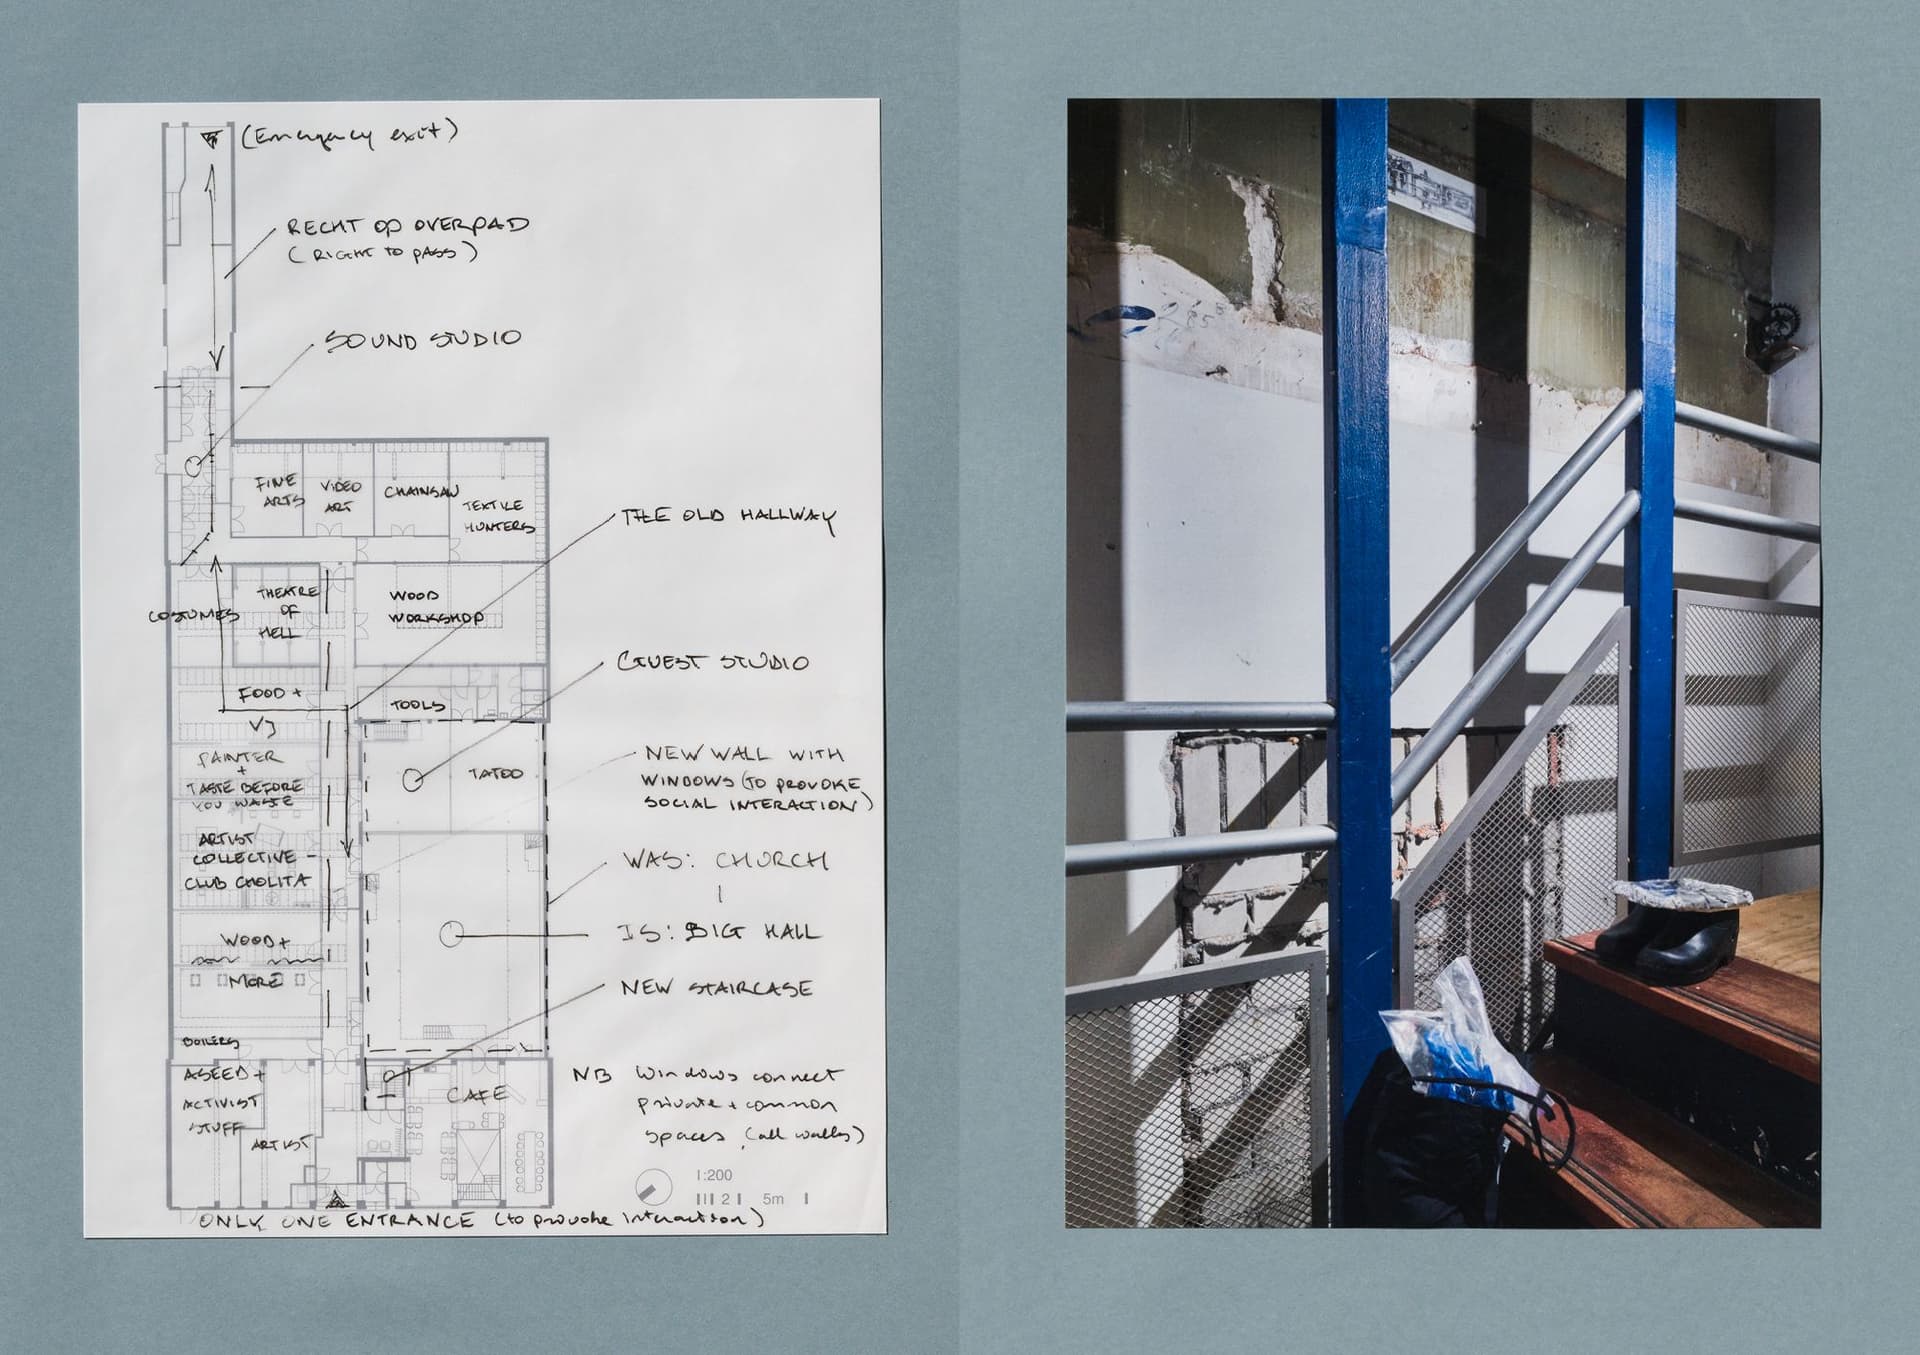 (Emergency exit)
RECHT OP OVERPAD
(RIGHT TO PASS)
SOUND STUDIO
FINE
ARTS
VIDEO
ART
CHAINSAW
TEXTILE
HUNTERS
THE OLD HALLWAY
COSTUMES
THEATRE
OF
HELL
WOOD
WORKSHOP
GUEST STUDIO
FOOD +
VJ
TOOLS
PAINTER
+
TASTE BEFORE
YOU WASTE
TATOO
NEW WALL WITH
WINDOWS (TO PROVOKE
SOCIAL INTERACTION)
ARTIST
COLLECTIVE -
CLUB CHOLITA
WAS: CHURCH
IS: BIG HALL
WOOD +
MORE
NEW STAIRCASE
BOILERS
ASEED +
ACTIVIST
STUFF
ARTIST
CAFE
NB Windows connect
private + common
spaces (all walls)
1:200
2 5m
ONLY ONE ENTRANCE (to provoke interaction)